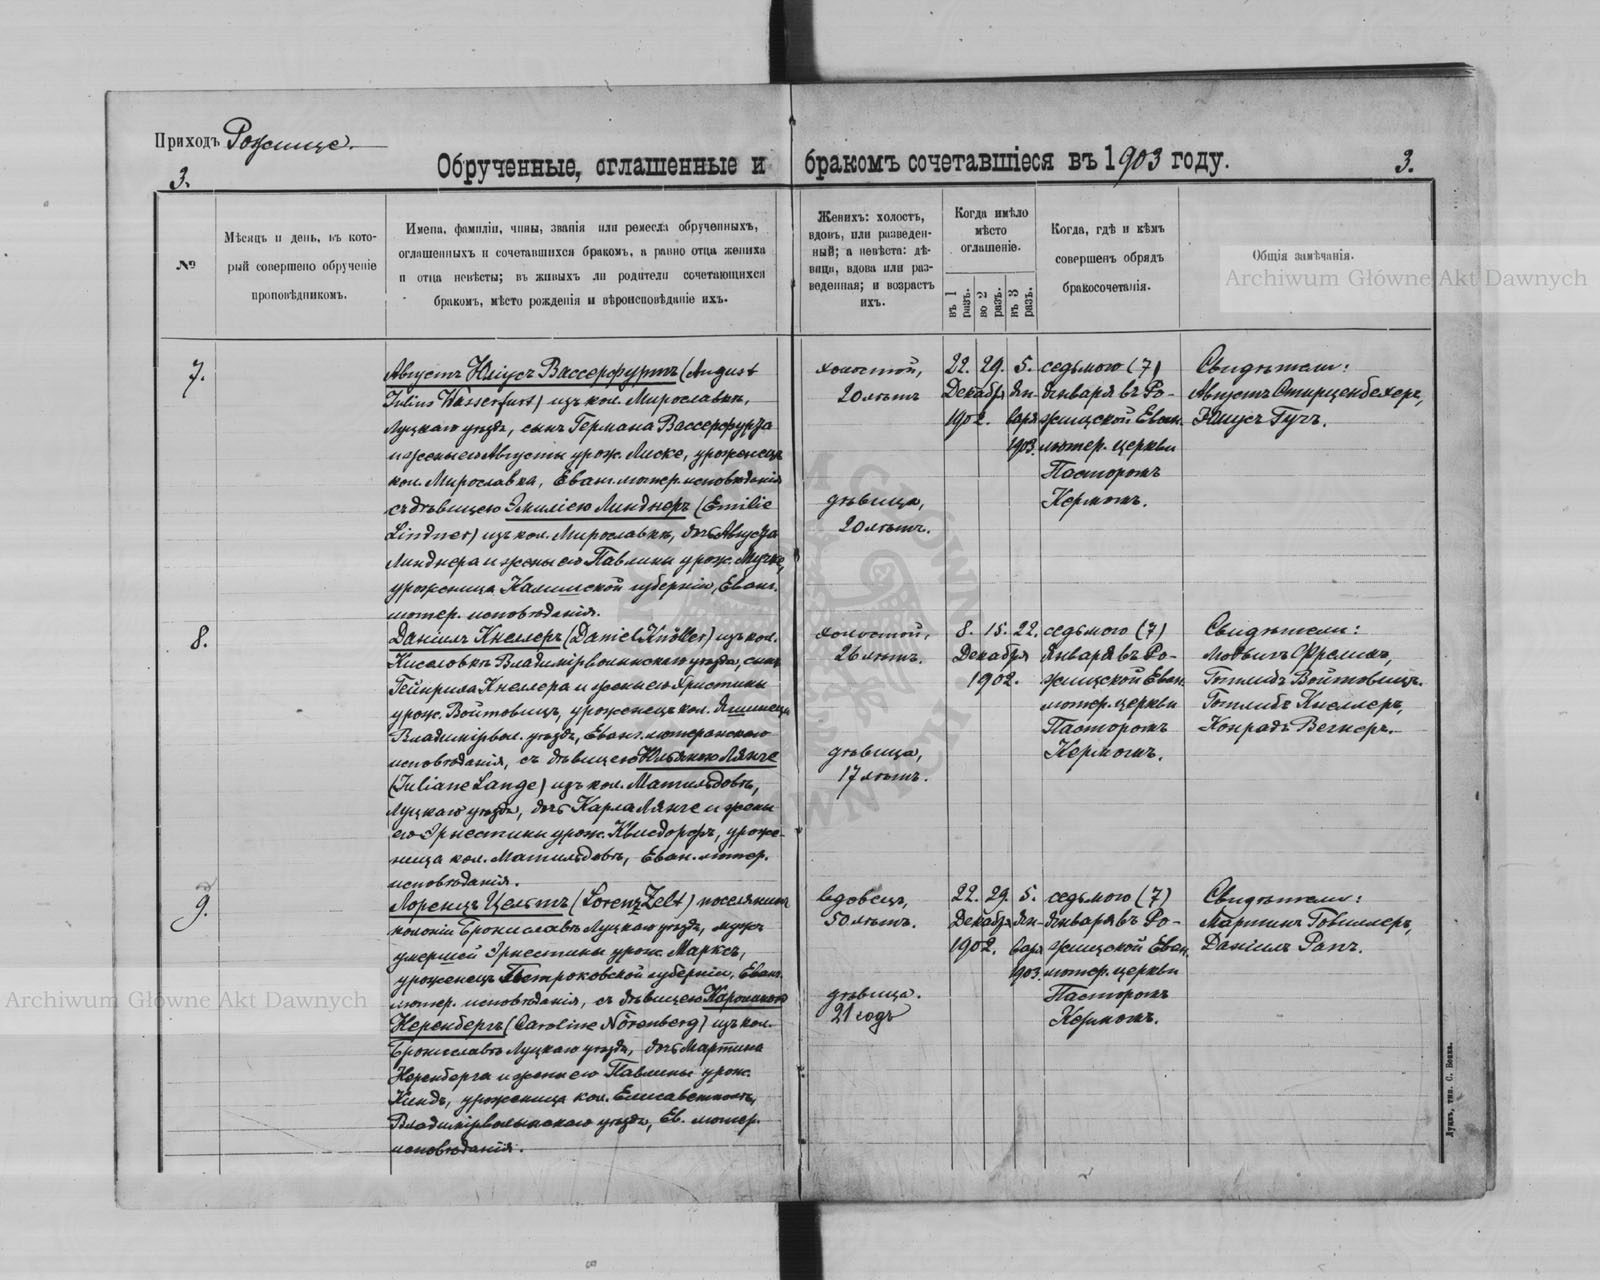 Приходъ Рожище.
Обрученные, оглашенные и бракомъ сочетавшіеся въ 1903 году.
3.
3.
№
Мѣсяцъ и день, въ кото-
рый совершено обрученіе
проповѣдникомъ.
Имена, фамиліи, чины, званія или ремесла обрученныхъ,
оглашенныхъ и сочетавшихся бракомъ, а равно отца жениха
и отца невѣсты; въ живыхъ ли родители сочетающихся
бракомъ, мѣсто рожденія и вѣроисповѣданіе ихъ.
Женихъ: холостъ,
вдовъ, или разведен-
ный; а невѣста: дѣ-
вица, вдова или раз-
веденная; и возрастъ
ихъ.
Когда имѣло
мѣсто
оглашеніе.
въ 1
разъ.
во 2
разъ.
въ 3
разъ.
Когда, гдѣ и кѣмъ
совершенъ обрядъ
бракосочетанія.
Общія замѣчанія.
Archiwum Główne Akt Dawnych
7.
Августъ Юліусъ Вассерфуртъ (August
Julius Wasserfurt) изъ кол. Мирославкѣ,
Луцкаго уѣзда, сынъ Германа Вассерфурта
и жены его Августы урож. Лиске, уроженецъ
кол. Мирославка, Еванг. лютер. исповѣданія
съ дѣвицею Эмиліею Линднеръ (Emilie
Lindner) изъ кол. Мирославкѣ, дочь Августа
Линднера и жены его Павлины урож.
уроженица Калишской губерніи, Еванг.
лютер. исповѣданія.
холостой,
20 лѣтъ
дѣвица,
20 лѣтъ.
22. 29. 5.
Декабря Ян-
1902. варя
1903.
седьмого (7)
Января въ Ро-
жищской Еван.
лютер. церкви
Пасторомъ
Кермомъ.
Свидѣтели:
Августъ
Юліусъ Гучъ.
8.
Даніилъ Кнеллеръ (Daniel Knöller) изъ кол.
Кисаловкѣ Владимірволынскаго уѣзда, сынъ
Гейнриха Кнеллера и жены его Христины
урож. Войтовицъ, уроженецъ кол.
Владимірвол. уѣзда, Еванг. лютеранскаго
исповѣданія, съ дѣвицею Юліаною Лянге
(Juliane Lange) изъ кол. Матильдовъ,
Луцкаго уѣзда, дочь Карла Лянге и жены
его Эрнестины урож. Квисдорфъ, уроже-
ница кол. Матильдовъ, Еван. лютер.
исповѣданія.
холостой,
26 лѣтъ.
дѣвица,
17 лѣтъ.
8. 15. 22.
Декабря
1902.
седьмого (7)
Января въ Ро-
жищской Еван.
лютер. церкви
Пасторомъ
Кермомъ.
Свидѣтели:
Людвигъ
Готлибъ Войтовицъ.
Готлибъ Кнеллеръ,
Конрадъ Вегнеръ.
9.
Лоренцъ Цельтъ (Lorenz Zelt) поселянинъ
колоніи Брониславъ Луцкаго уѣзда, мужъ
умершей Эрнестины урож. Марксъ,
уроженецъ Петроковской губерніи, Еванг.
лютер. исповѣданія, съ дѣвицею Каролиною
Неренбергъ (Caroline Nörenberg) изъ кол.
Брониславъ Луцкаго уѣзда, дочь Мартина
Неренберга и жены его Павлины урож.
Киндъ, уроженица кол.
Владимірволынскаго уѣзда, Ев. лютер.
исповѣданія.
вдовецъ,
50 лѣтъ.
дѣвица.
21 годъ
22. 29. 5.
Декабря Ян-
1902. варя
1903.
седьмого (7)
Января въ Ро-
жищской Еван.
лютер. церкви
Пасторомъ
Кермомъ.
Свидѣтели:
Мартинъ
Даніилъ Рапъ.
Archiwum Główne Akt Dawnych
Луцкъ, тип. С. Бокка.